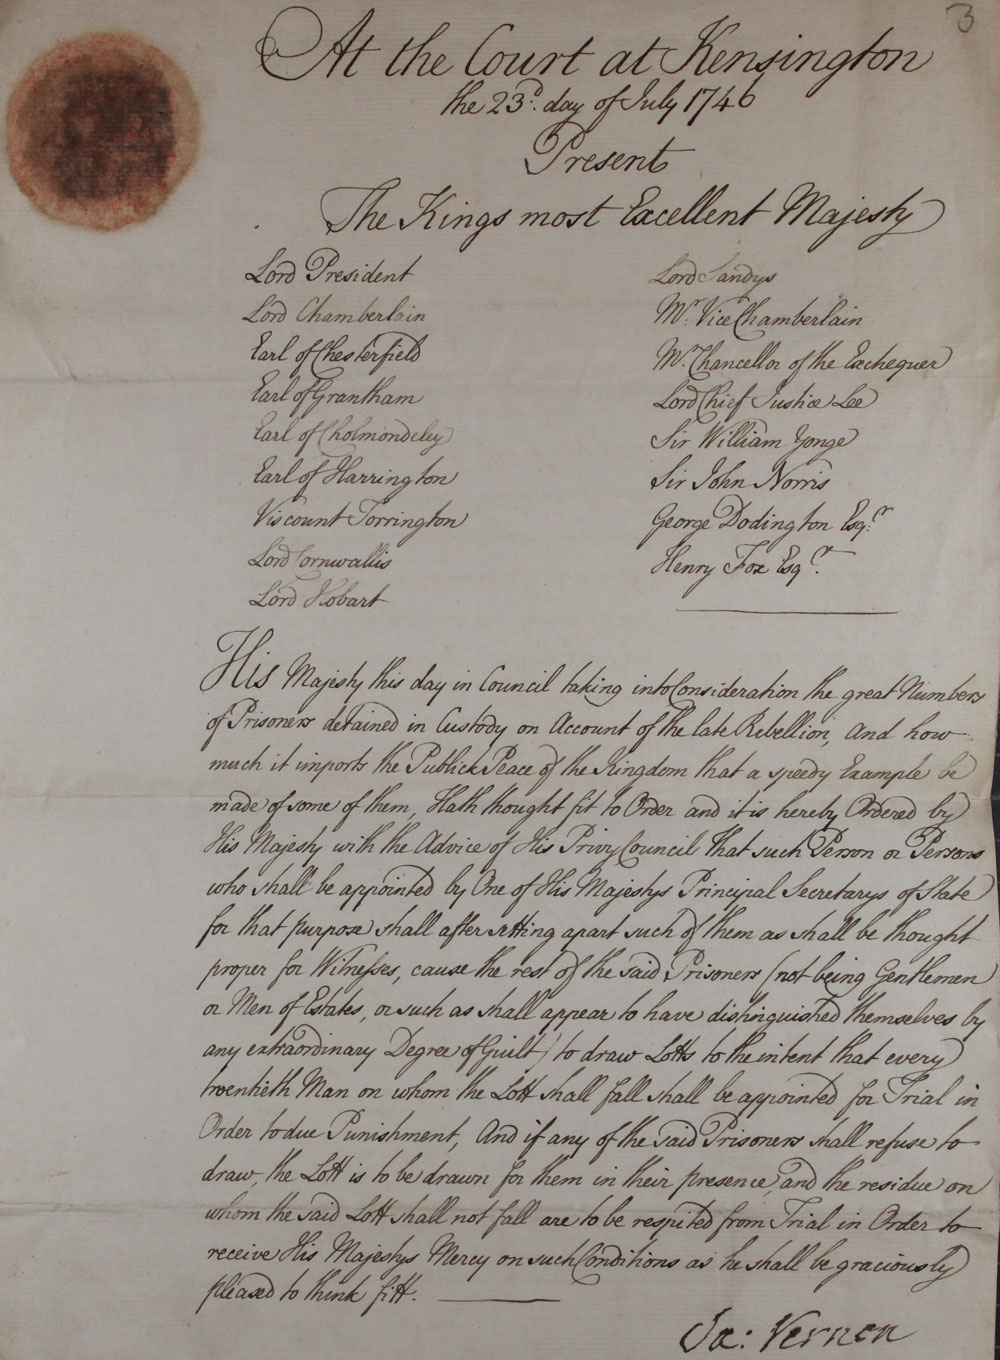 3
At the Court at Kensington
the 23d. day of July 1746
Present
The Kings most Excellent Majesty
Lord President
Lord Chamberlain
Earl of Chesterfield
Earl of Grantham
Earl of Cholmondeley
Earl of Harrington
Viscount Torrington
Lord Cornwallis
Lord Hobart
Lord Sandys
Mr. Vice Chamberlain
Mr. Chancellor of the Exchequer
Lord Chief Justice Lee
Sir William Yonge
Sir John Norris
George Dodington Esq.r
Henry Fox Esq.r
His Majesty this day in Council taking into Consideration the great Numbers
of Prisoners detained in Custody on Account of the late Rebellion, And how
much it imports the Publick Peace of the Kingdom that a speedy Example be
made of some of them, Hath thought fit to Order and it is hereby Ordered by
His Majesty with the Advice of His Privy Council That such Person or Persons
who shall be appointed by One of His Majestys Principal Secretarys of State
for that purpose shall after setting apart such of them as shall be thought
proper for Witnesses, cause the rest of the said Prisoners (not being Gentlemen
or Men of Estates, or such as shall appear to have distinguished themselves by
any extraordinary Degree of Guilt) to draw Lotts to the intent that every
twentieth Man on whom the Lott shall fall shall be appointed for Trial in
Order to due Punishment, And if any of the said Prisoners shall refuse to
draw, the Lott is to be drawn for them in their presence, and the residue on
whom the said Lott shall not fall are to be respited from Trial in Order to
receive His Majestys Mercy on such Conditions as he shall be graciously
pleased to think fitt.
Ja: Vernon